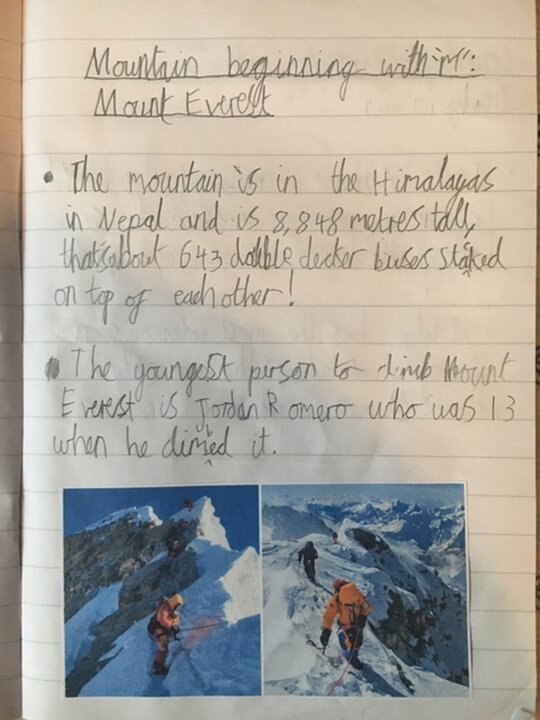 Mountain beginning with 'M':
Mount Everest
• The mountain is in the Himalayas
in Nepal and is 8,848 metres tall,
thats about 643 double decker buses stacked
on top of each other!
• The youngest person to climb Mount
Everest is Jordan Romero who was 13
when he climbed it.